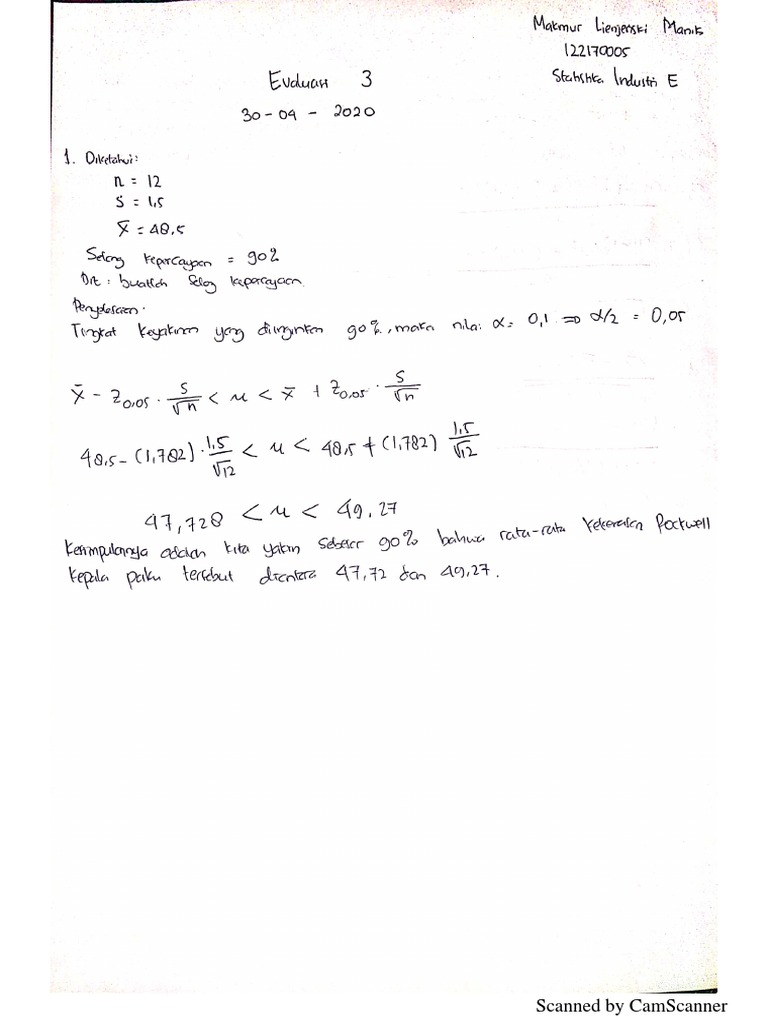 Makmur Lienjenski Manik
122170005
Statistika Industri E
Evaluasi 3
30-04-2020
1. Diketahui:
n = 12
S = 1,5
x̄ = 48,5
Selang kepercayaan = 90%
Dit : buatlah selag kepercayaan
Penyelesaian.
Tingkat Keyakinan yang diinginkan 90%, maka nilai α = 0,1 ⇒ α/2 = 0,05
x̄ - Z0,05 · S/√n < μ < x̄ + Z0,05 · S/√n
48,5 - (1,782) · 1,5/√12 < μ < 48,5 + (1,782) 1,5/√12
47,728 < μ < 49,27
Kesimpulannya adalah kita yakin sebesar 90% bahwa rata-rata kekerasan Rockwell
kepala paku tersebut diantara 47,72 dan 49,27.
Scanned by CamScanner